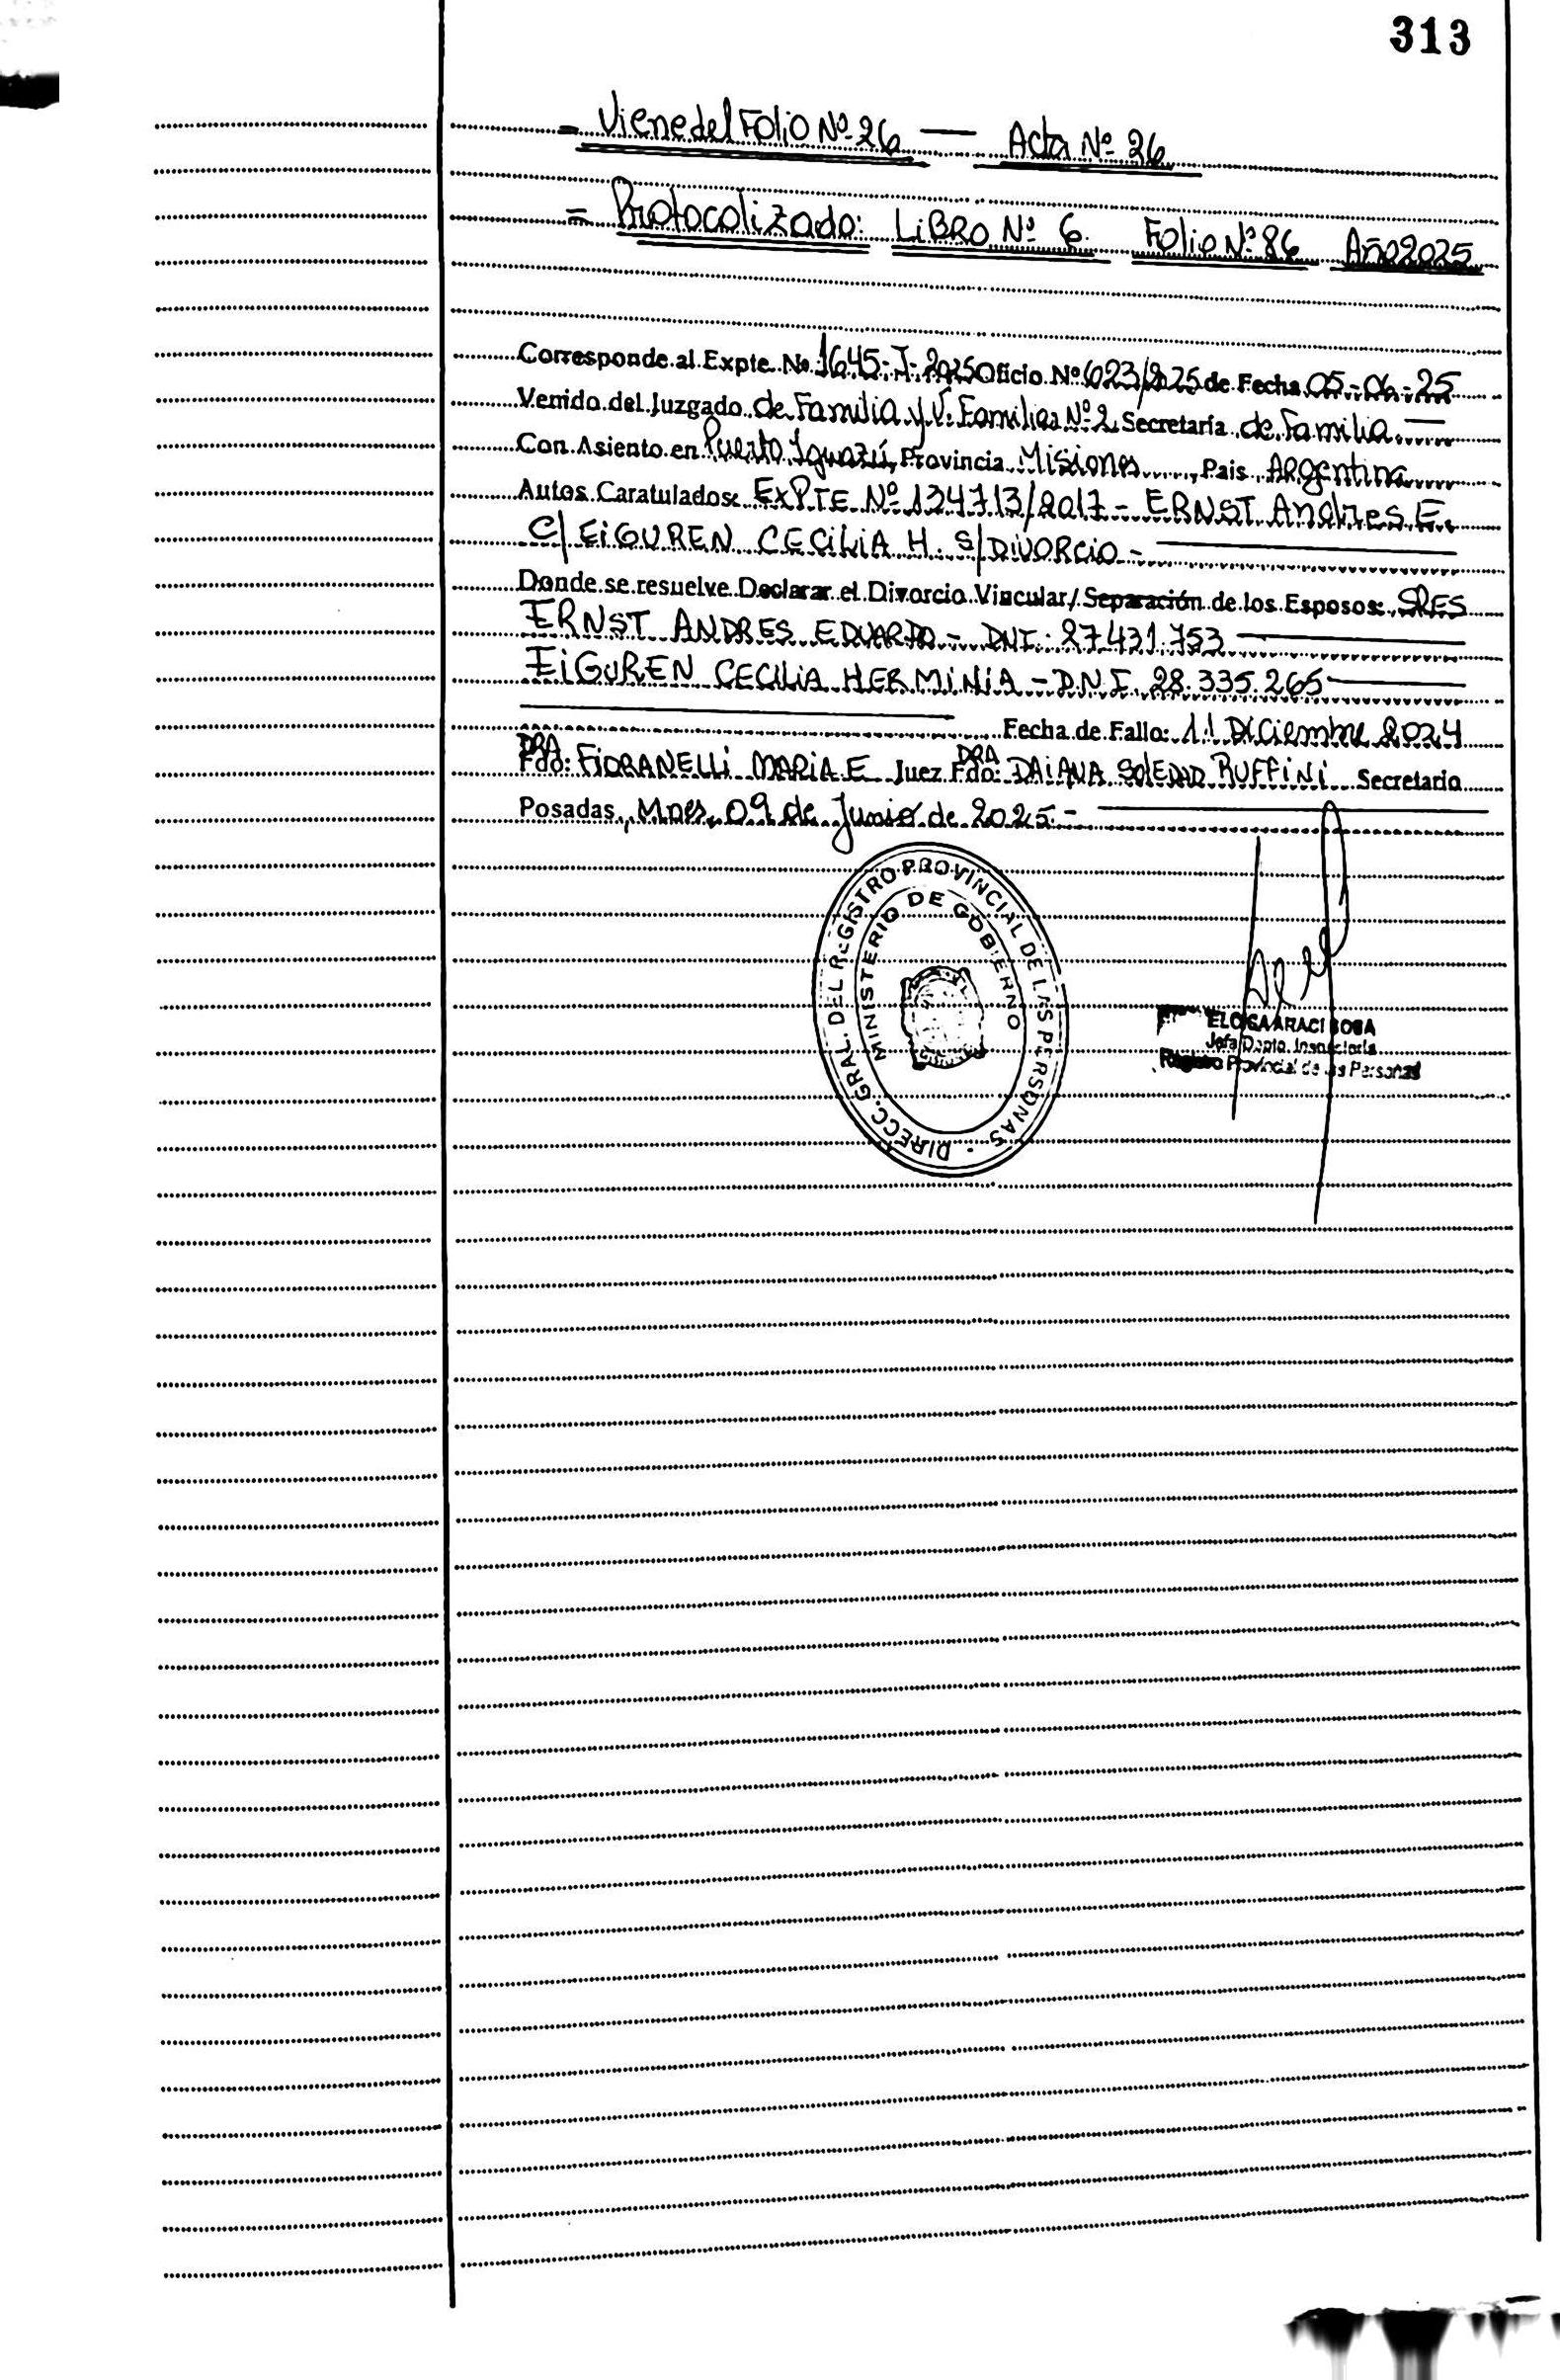 313
= Viene del Folio Nº 26 — Acta Nº 26
= Protocolizado: LiBRO Nº 6 Folio Nº 86 Año 2025
Corresponde al Expte. Nº 1645-I-2025 Oficio Nº 623/2025 de Fecha 05-06-25
Venido del Juzgado de Familia y V. Familiar Nº 2 Secretaría de Familia. —
Con Asiento en Puerto Iguazú, Provincia Misiones, Pais Argentina
Autos Caratulados: EXPTE Nº 134713/2017 - ERNST Andres E.
C/ EiGUREN CECILIA H. S/ DiVORCiO -
Donde se resuelve Declarar el Divorcio Vincular / Separación de los Esposos: SRES
ERNST ANDRES EDUARDO - DNI: 27.431.753
EiGUREN CECILIA HERMINIA - D.N.I. 28.335.265
Fecha de Fallo: 11 Diciembre 2024
DRA DRA
Fdo: FiORANELLi MARIA E Juez Fdo: DAiANA SOLEDAD RUFFiNi Secretario
Posadas, Mnes, 09 de Junio de 2025.-
DIRECC. GRAL. DEL REGISTRO PROVINCIAL DE LAS PERSONAS
MINISTERIO DE GOBIERNO
ARACI SOSA
Jefa Dpto. Inspectoría
Registro Provincial de las Personas